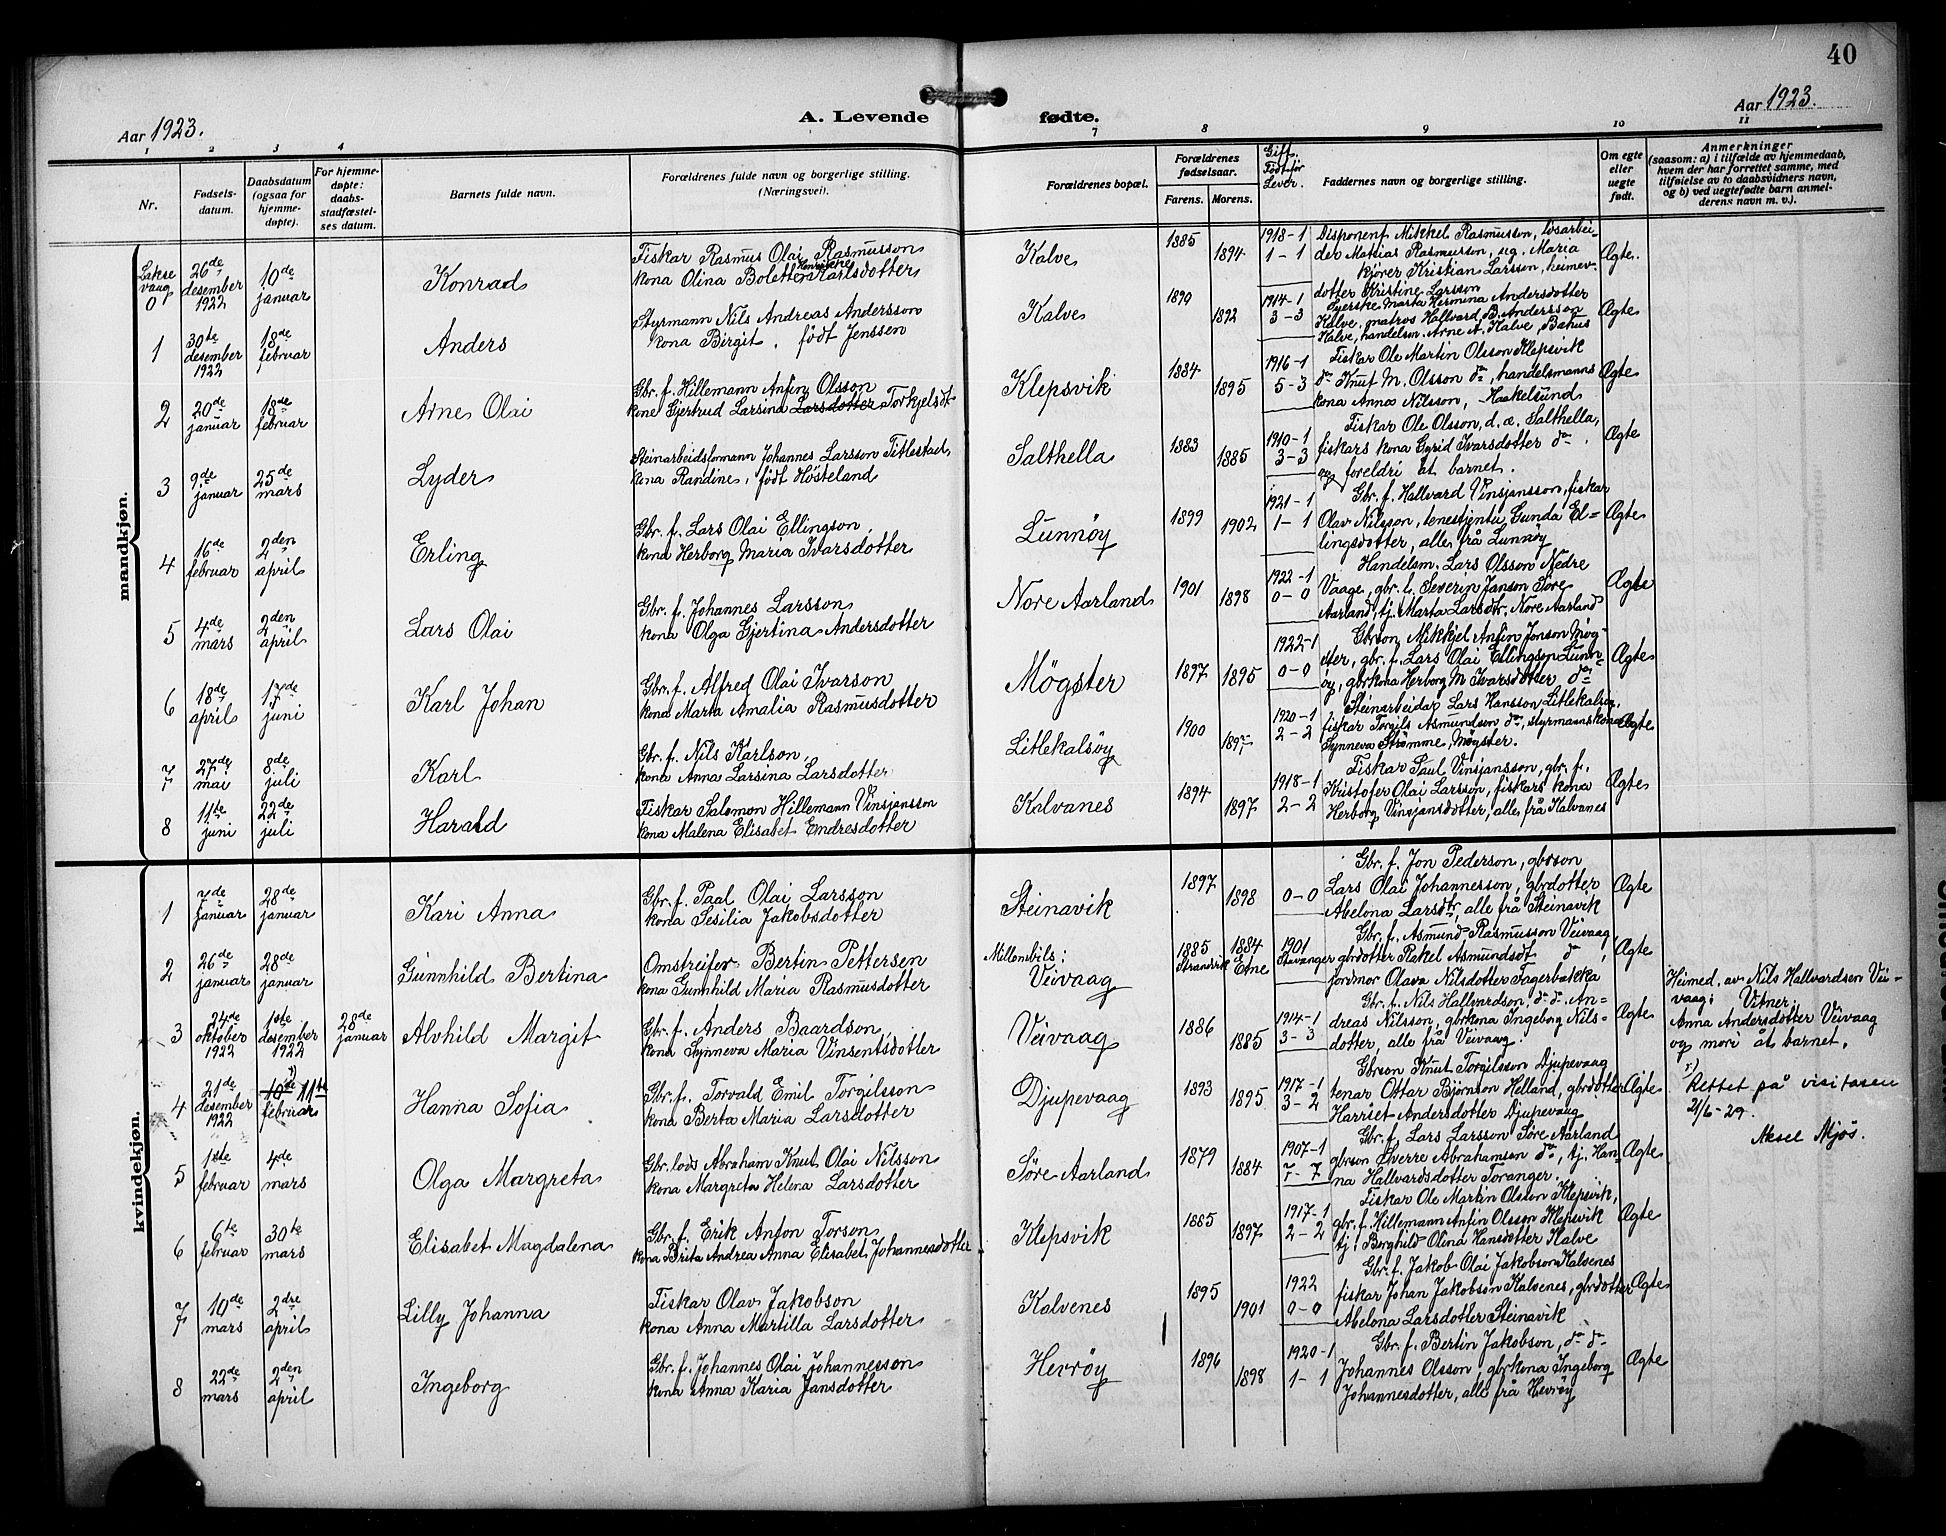 40
Aar 1923.
A. Levende fødte.
Aar 1923.
1 2 3 4 7 8 9 10 11
Nr.
Fødsels-
datum.
Daabsdatum
(ogsaa for
hjemme-
døpte).
For hjemme-
døpte:
daabs-
stadfæstel-
ses datum.
Barnets fulde navn.
Forældrenes fulde navn og borgerlige stilling.
(Næringsvei).
Forældrenes bopæl.
Forældrenes
fødselsaar.
Farens. Morens.
Gift.
Født før
Lever.
Faddernes navn og borgerlige stilling.
Om egte
eller
uegte
født.
Anmerkninger
(saasom: a) i tilfælde av hjemmedaab,
hvem der har forrettet samme, med
tilføielse av to daabsvidners navn,
og b) ved uegtefødte barn anmel-
derens navn m. v.).
mandkjøn.
Lakse
vaag
0
26de
desember
1922
10de
januar
Konrad
Fiskar Rasmus Olai Rasmusson
kona Olina Bolette Henrikke Karlsdotter
Kalve
1885
1894
1918-1
1-1
Disponent Mikkel Rasmusson, lösarbei-
der Mathias Rasmusson, ug. Maria
kjörer Kristian Larsson, heimev-
dotter Kristine Larsson
Ægte.
1
30te
desember
1922
18de
februar
Anders
Styrmann Nils Andreas Andersson
kona Birgit, født Jensen
Kalve
1890
1892
1914-1
3-3
Syerske Marta Hermina Andersdotter
Kalve, matros Hallvard B. Andersson
Kalve, handelsm. Arne A. Kalve, Bahus
Ægte
2
20de
januar
18de
februar
Arne Olai
Gbr. f. Hillemann Anfin Olsson
kone Gjertrud Larsina Larsdotter Torkjelsdt
Klepsvik
1884
1895
1916-1
5-3
Fiskar Ole Martin Olsson Klepsvik
do Knut M. Olsson do, handelsmanns
kona Anna Nilsson, Haakelsund
Ægte
3
9de
januar
25de
mars
Lyder
Steinarbeidsformann Johannes Larsson Titlestad,
kona Randine, født Hösteland
Salthella
1883
1885
1910-1
3-3
Fiskar Ole Olsson, d. æ. Salthella,
fiskars kona Gyrid Ivarsdotter do.
og foreldri åt barnet.
Ægte
4
16de
februar
2den
april
Erling
Gbr. f. Lars Olai Ellingson,
kona Herborg Maria Ivarsdotter
Lunnöy
1899
1902
1921-1
1-1
Gbr. f. Hallvard Vinsjansson, fiskar
Olav Nilsson, tenestjenta Gunda El=
lingsdotter, alle frå Lunnöy
Ægte
5
4de
mars
2den
april
Lars Olai
Gbr. f. Johannes Larsson
kona Olga Gjertina Andersdotter
Nore Aarland
1901
1898
1922-1
0-0
Handelsm. Lars Olsson Nedre
Vaage, gbr. l. Severin Janson Søre
Aarland, tj. Marta Larsdtr, Nore Aarland
Ægte
6
18de
april
17de
juni
Karl Johan
Gbr. f. Alfred Olai Ivarson
kona Marta Amalia Rasmusdotter
Mögster
1897
1895
1922-1
0-0
Gbrson Mikkjel Anfin Jonson Mög-
ster, gbr. f. Lars Olai Ellingson Lunn=
öy, gbrkona Herborg M Ivarsdotter do
Ægte
7
27de
mai
8de
juli
Karl
Gbr. f. Nils Karlson,
kona Anna Larsina Larsdotter
Litlekalsöy
1900
1920-1
2-2
Steinarbeidar Lars Hansson Litlekalsøy,
fiskar Torgils Asmundson do, styrmannskona
Synneva Strömme, Mögster.
Ægte
8
11te
juni
22de
juli
Harald
Fiskar Salomon Hillemann Vinsjansson
kona Malena Elisabet Endresdotter
Kalvanes
1894
1897
1918-1
2-2
Fiskar Paul Vinsjansson, gbr. f.
Kristofer Olai Larsson, fiskars kona
Herborg Vinsjansdotter, alle frå Kalvanes
Ægte
kvindekjøn.
1
7de
januar
28de
januar
Kari Anna
Gbr. f. Paal Olai Larsson
kona Sesilia Jakobsdotter
Steinavik
1897
1898
0-0
Gbr. f. Jon Pederson, gbrson
Lars Olai Johannesson, gbrdotter
Abelona Larsdtr, alle frå Steinavik
Ægte
2
26de
januar
28de
januar
Gunnhild Bertina
Omstreifer Bertin Pettersen
kona Gunnhild Maria Rasmusdotter
Millombils:
Veivaag
1885
Strandvik
1884
Etne
1901
Stavanger
Gbr. f. Asmund Rasmusson Veivaag
gbrdotter Rakel Asmundsdt do,
jordmor Olava Nilsdotter Fagerbakka
Ægte
3
24de
oktober
1922
1ste
desember
1922
28de
januar
Alvhild Margit
Gbr. f. Anders Baardson,
kona Synneva Maria Vinsentsdotter
Veivaag
1886
1885
1914-1
3-3
Gbr. f. Nils Hallvardson, do do. An=
dreas Nilsson, gbrkona Ingeborg Nils-
dotter, alle frå Veivaag.
Ægte
Heimed. av Nils Hallvardsen Vei-
vaag; Vitner,
Anna Andersdotter Veivaag
og mori åt barnet.
4
21de
desember
1922
10de 11te
februar
Hanna Sofia
Gbr. f. Torvald Emil Torgilsson
kona Berta Maria Larsdotter
Djupevaag
1893
1895
1917-1
3-2
Gbrson Knut Torgilsson Djupevaag
tenar Ottar Björnson Helland, gbrdotter
Harriet Andersdotter Djupevaag
Ægte
x) Rettet på visitasen
21/6-29.
Aksel Mjøs.
5
1ste
februar
4de
mars
Olga Margreta
Gbr. lods Abraham Knut Olai Nilsson
kona Margreta Helena Larsdotter
Søre Aarland
1879
1884
1907-1
7-7
Gbr. f. Lars Larsson Søre Aarland
gbrson Sverre Abrahamsen do, tj. Han=
na Hallvardsdotter Toranger.
Ægte
6
6te
februar
30te
mars
Elisabet Magdalena
Gbr. f. Erik Anton Torson
kona Brita Andrea Anna Elisabet Johannesdotter
Klepsvik
1885
1897
1917-1
2-2
Fiskar Ole Martin Olsson Klepsvik,
gbr. f. Hillemann Anfin Olsson Klepsvik
tj. Borghild Olina Hansdotter Kalve
Ægte
7
10de
mars
2dre
april
Lilly Johanna
Fiskar Olav Jakobson
kona Anna Martilla Larsdotter
Kalvenes
1895
1901
1922
0-0
Gbr. f. Jakob Olai Jakobson Kalvenes
fiskar Johan Jakobson Kalvenes, gbrdotter
Abelona Larsdotter Steinavik
Ægte
8
22de
mars
2den
april
Ingeborg
Gbr. f. Johannes Olai Johannesson
kona Anna Karia Jansdotter
Hevröy
1896
1898
1920-1
1-1
Gbr. f. Bertin Jakobson, do do
Johannes Olsson, gbrkona Ingeborg
Johannesdotter, alle frå Hevröy
Ægte